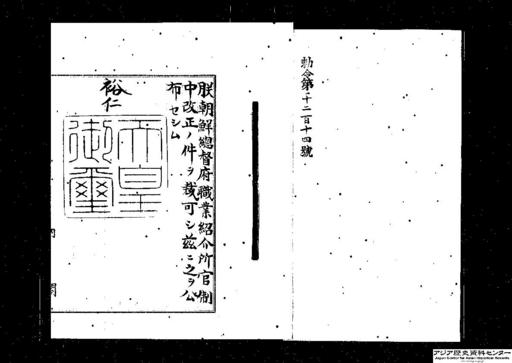 勅令第千二百十四號
朕朝鮮總督府職業紹介所官制
中改正ノ件ヲ裁可シ茲ニ之ヲ公
布セシム
裕仁
天皇
御璽
アジア歴史資料センター
Japan Center for Asian Historical Records